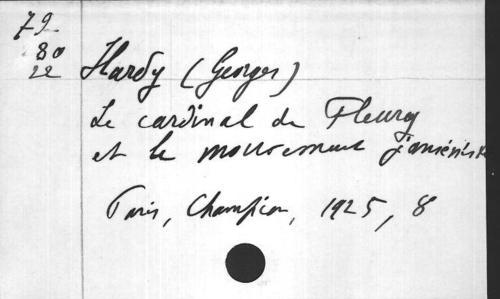 79
80
22
Hardy (Georges)
Le cardinal de Fleury
et le mouvement janséniste
Paris, Champion, 1925, 8